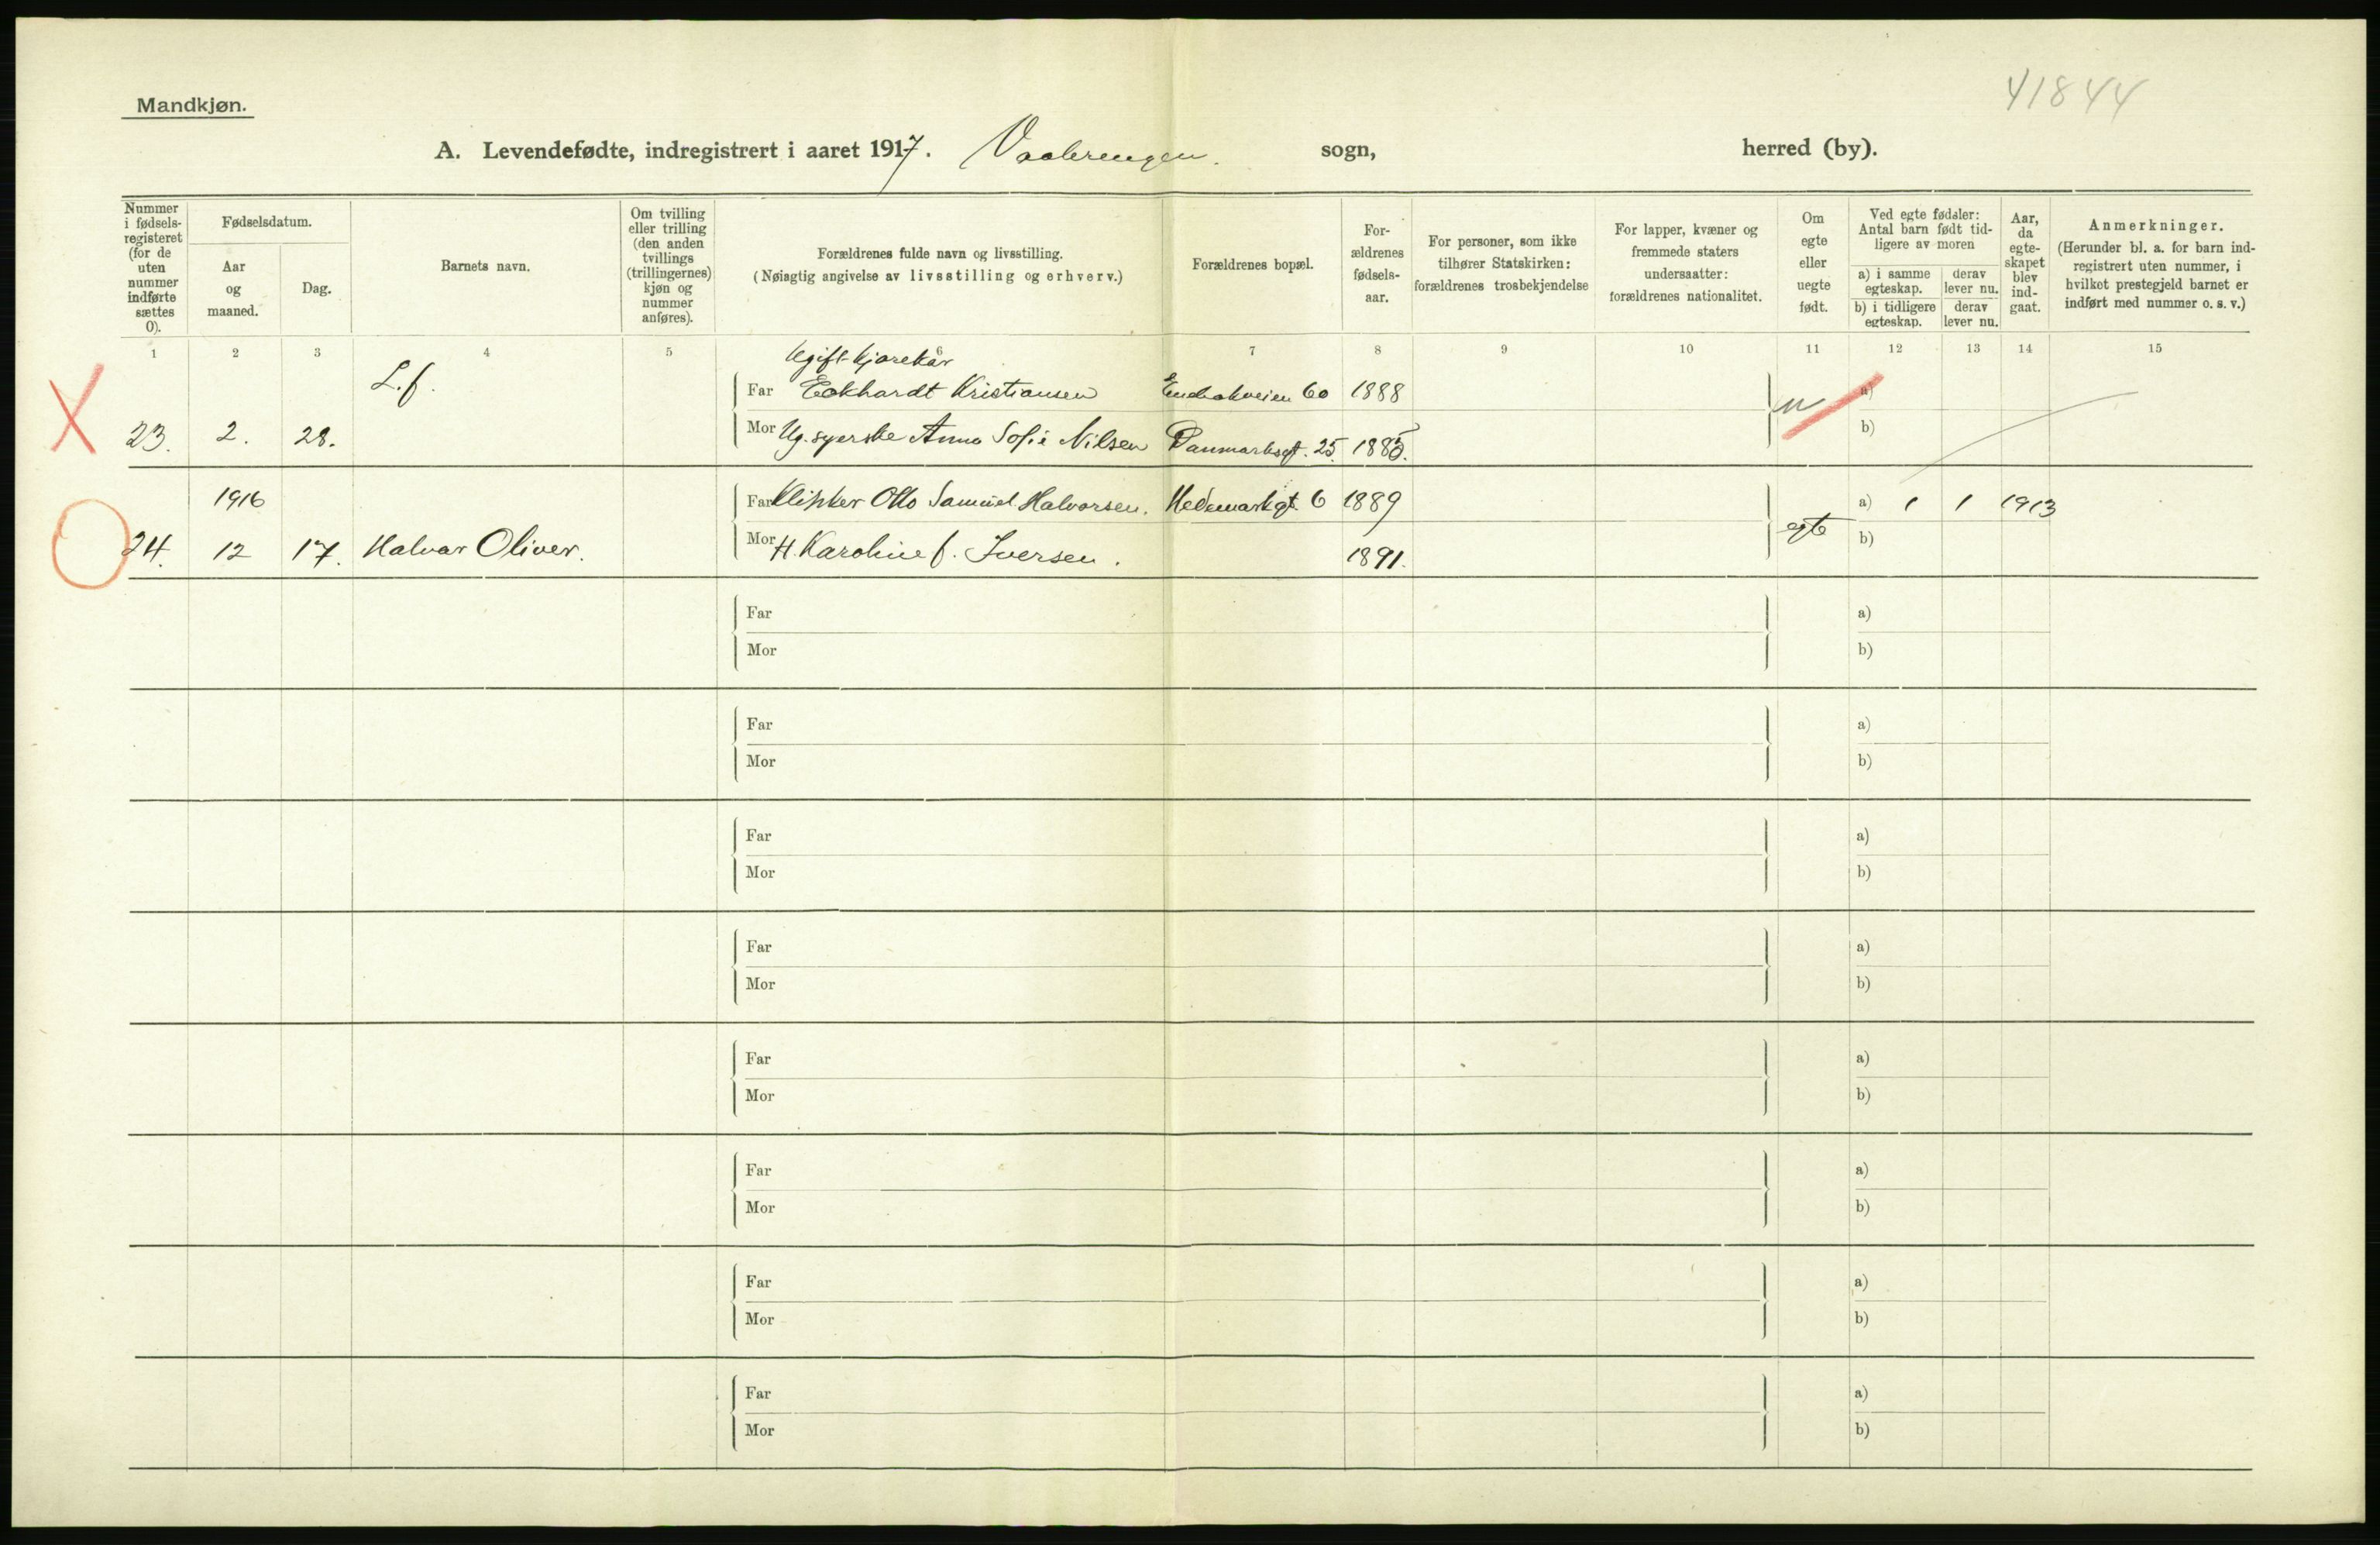 Mandkjøn.
41844
A. Levendefødte, indregistrert i aaret 1917. Vaalerengen. sogn, herred (by).
Nummer i fødselsregisteret (for de uten nummer indførte sættes 0).
Fødselsdatum.
Aar og maaned.
Dag.
Barnets navn.
Om tvilling eller trilling (den anden tvillings (trillingernes) kjøn og nummer anføres).
Forældrenes fulde navn og livsstilling.
(Nøiagtig angivelse av livsstilling og erhverv.)
Forældrenes bopæl.
Forældrenes fødselsaar.
For personer, som ikke tilhører Statskirken: forældrenes trosbekjendelse
For lapper, kvæner og fremmede staters undersaatter: forældrenes nationalitet.
Om egte eller uegte født.
Ved egte fødsler: Antal barn født tidligere av moren
a) i samme egteskap. derav lever nu.
b) i tidligere egteskap. derav lever nu.
Aar, da egteskapet blev indgaat.
Anmerkninger.
(Herunder bl. a. for barn indregistrert uten nummer, i hvilket prestegjeld barnet er indført med nummer o. s. v.)
1 2 3 4 5 6 7 8 9 10 11 12 13 14 15
X
L.f.
Ugift kjørekar
Far Eckhardt Kristiansen 60 1888 u a)
23. 2. 28. Mor Ug. syerske Anna Sofie Nilsen Danmarksgt. 25. 1885. b)
1916 Far Otto Samuel Halvorsen. Hedemarkgt. 6 1889 egte a) 1 1 1913
24. 12 17. Halvar Oliver. Mor H. Karoline f. Iversen. 1891. b)
Far a)
Mor b)
Far a)
Mor b)
Far a)
Mor b)
Far a)
Mor b)
Far a)
Mor b)
Far a)
Mor b)
Far a)
Mor b)
Far a)
Mor b)